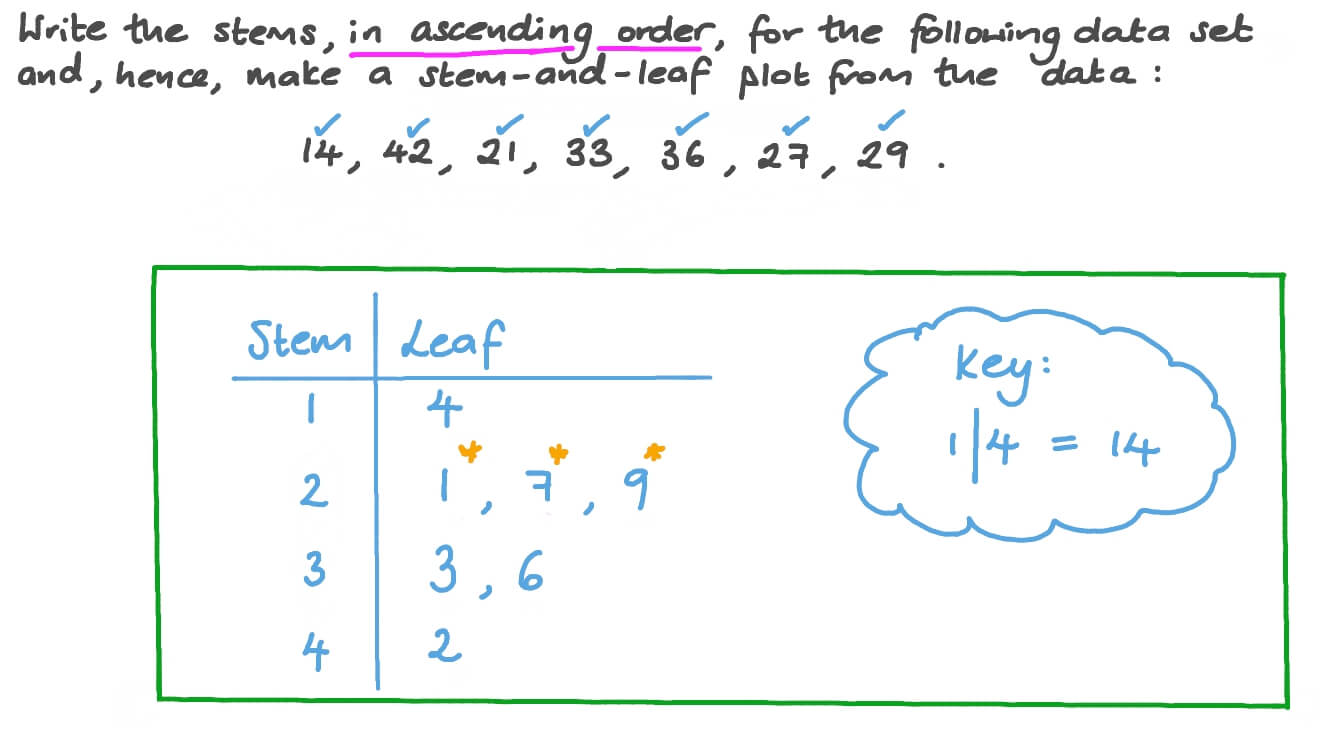 Write the stems, in ascending order, for the following data set
and, hence, make a stem-and-leaf plot from the data :
14, 42, 21, 33, 36, 27, 29 .
Stem | Leaf
1 | 4
2 | 1*, 7*, 9*
3 | 3, 6
4 | 2
Key:
1|4 = 14